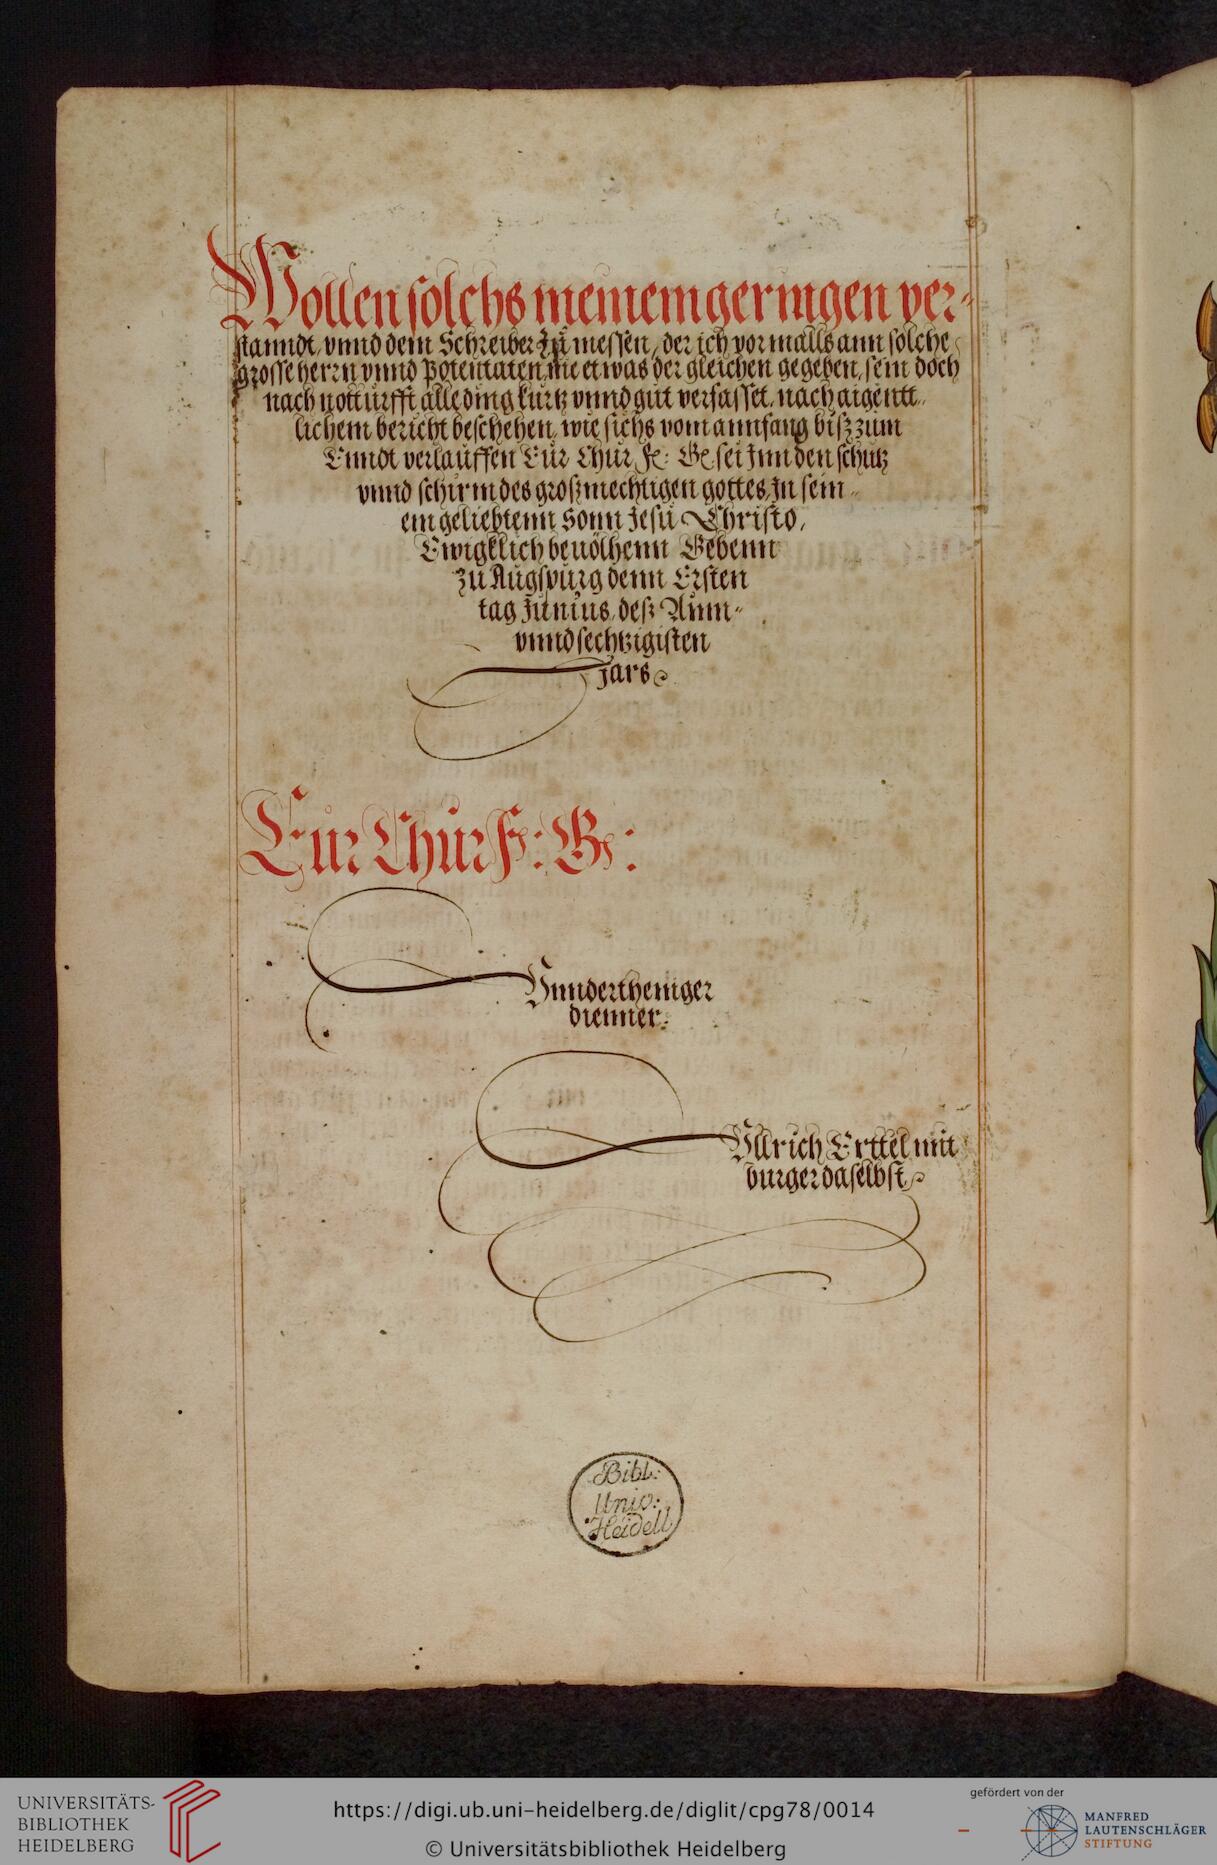 Wollen solchs meinem geringen ver-
stanndt, vnnd dem Schreiber zů messen, der ich vormalls ann solche
grosse herrn vnnd Potentaten, nie etwas der gleichen gegeben, sein doch
nach notturfft alle ding kurtz vnnd gut verfasset, nach aigentt-
lichem bericht beschehen, wie sichs vom annfang bisz zum
Enndt verlauffen Eur Chur F: G: sei Inn den schutz
vnnd schirm des groszmechtigen gottes, In sein-
em geliebtenn Sonn Jesu Christo,
Ewigklich beuölhenn Gebenn
zu Augspurg denn Ersten
tag Junius, desz Ainn-
vnnd sechtzigisten
Jars
Eur Chur F: G:
Vnndertheniger
dienner.
Vllrich Erttel mit
burger daselbst
Bibl:
Univ:
Heidelb
UNIVERSITÄTS-
BIBLIOTHEK
HEIDELBERG
https://digi.ub.uni-heidelberg.de/diglit/cpg78/0014
© Universitätsbibliothek Heidelberg
gefördert von der
MANFRED
LAUTENSCHLÄGER
STIFTUNG